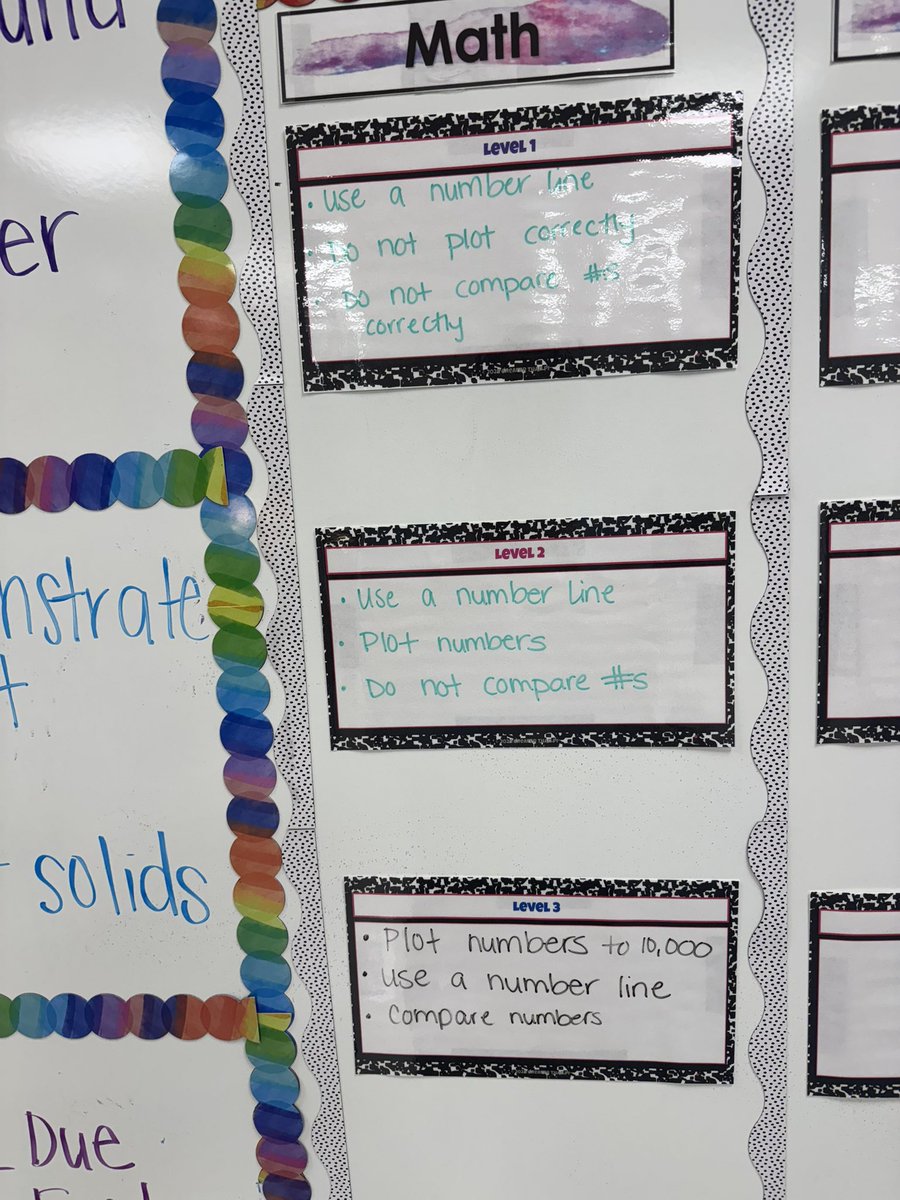 und
er
nstrate
t
solids
Due
Math
Level 1
• Use a number line
• Do not plot correctly
• Do not compare #s
correctly
Level 2
• Use a number line
• Plot numbers
• Do not compare #s
Level 3
• Plot numbers to 10,000
• use a number line
• compare numbers